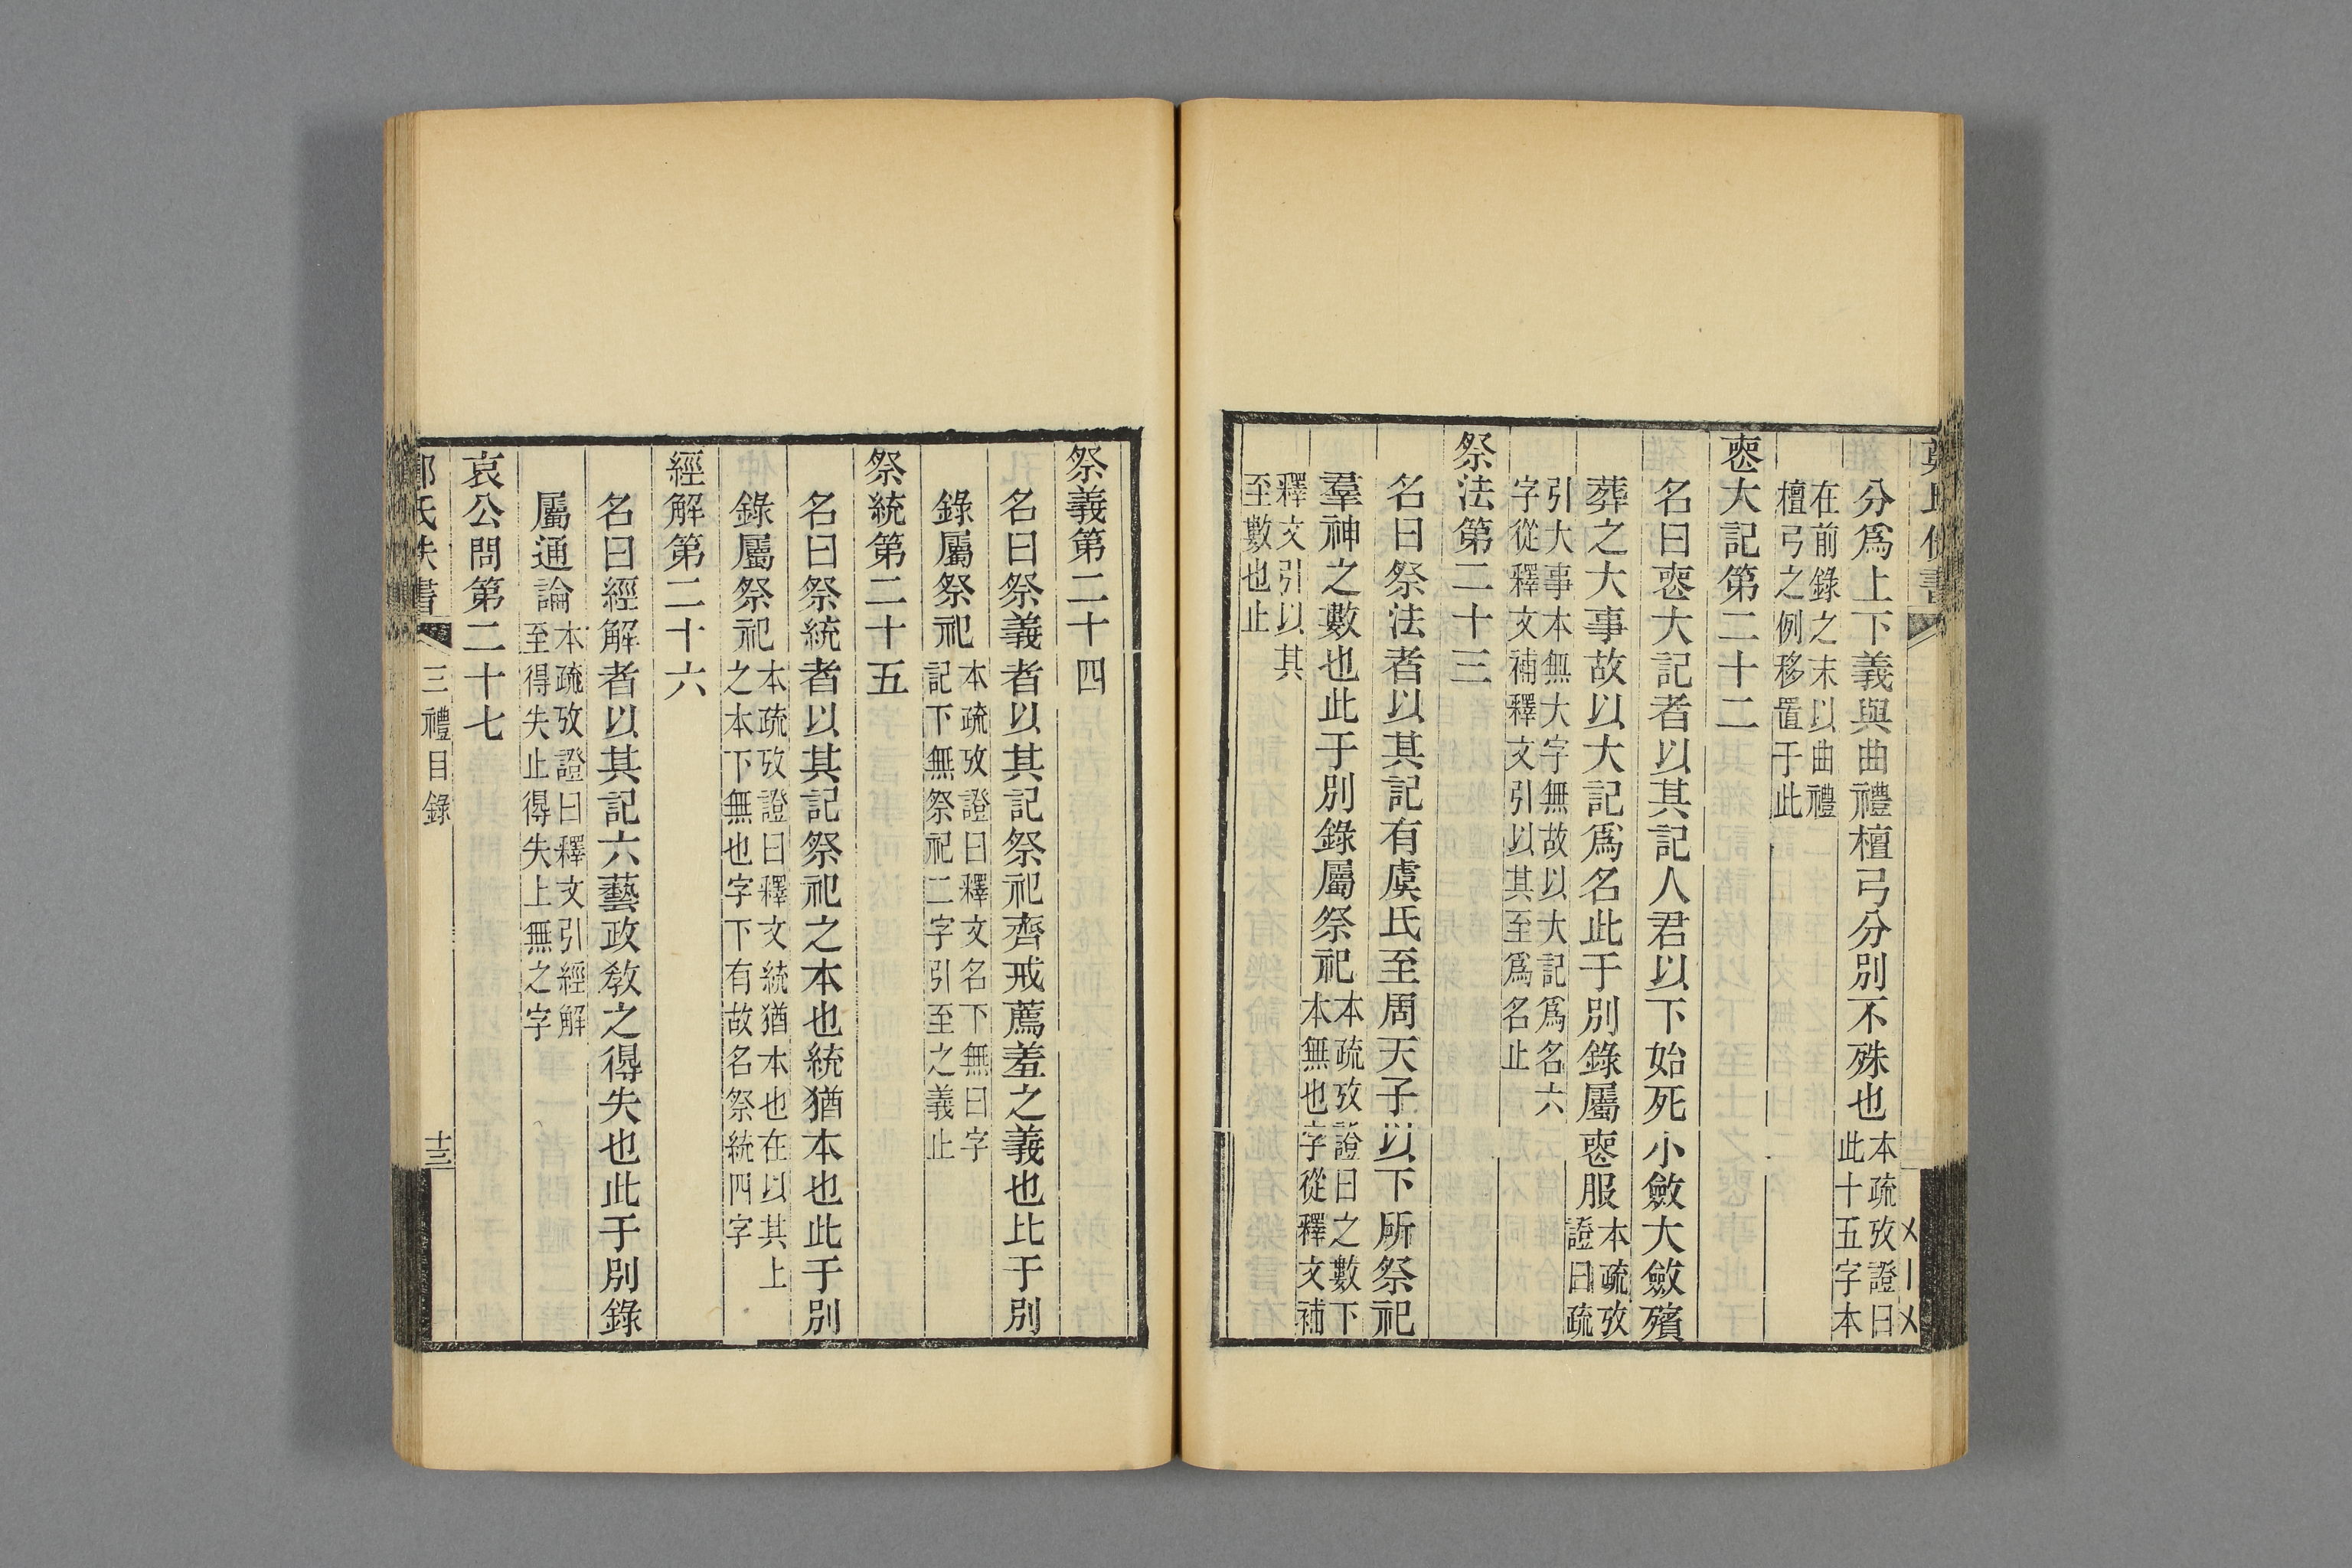 分爲上下義與曲禮檀弓分別不殊也本疏攷證曰此十五字本
在前錄之末以曲禮檀弓之例移置于此
喪大記第二十二
名曰喪大記者以其記人君以下始死小斂大斂殯
葬之大事故以大記爲名此于別錄屬喪服本疏攷證曰疏
引大事本無大字無故以大記爲名六字從釋文補釋文引以其至爲名止
祭法第二十三
名曰祭法者以其記有虞氏至周天子以下所祭祀
羣神之數也此于別錄屬祭祀本疏攷證曰之數下本無也字從釋文補
釋文引以其至數也止
祭義第二十四
名曰祭義者以其記祭祀齊戒薦羞之義也比于別
錄屬祭祀本疏攷證曰釋文名下無曰字記下無祭祀二字引至之義止
祭統第二十五
名曰祭統者以其記祭祀之本也統猶本也此于別
錄屬祭祀本疏攷證曰釋文統猶本也在以其上之本下無也字下有故名祭統四字
經解第二十六
名曰經解者以其記六藝政教之得失也此于別錄
屬通論本疏攷證曰釋文引經解至得失止得失上無之字
哀公問第二十七
三禮目錄 十三